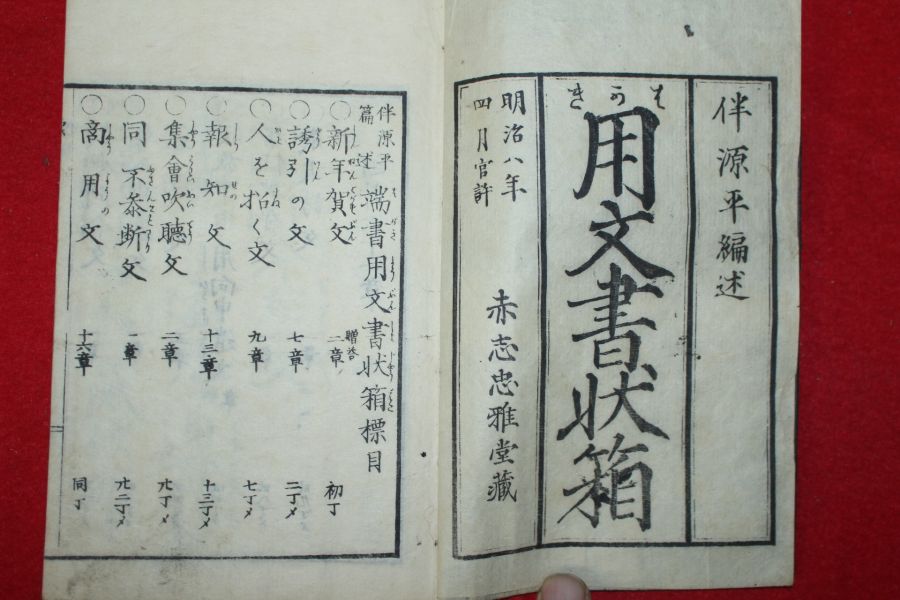 伴源平編述
はがき
用文書状箱
明治八年
四月官許
赤志忠雅堂藏
伴源平
篇述
端書用文書状箱標目
○新年賀文 贈答 二章 初丁
○誘引の文 七章 二丁メ
○人を招く文 九章 七丁メ
○報知文 十三章 十三丁メ
○集會吹聴文 二章
○同不参断文 一章
○商用文 十六章 同丁